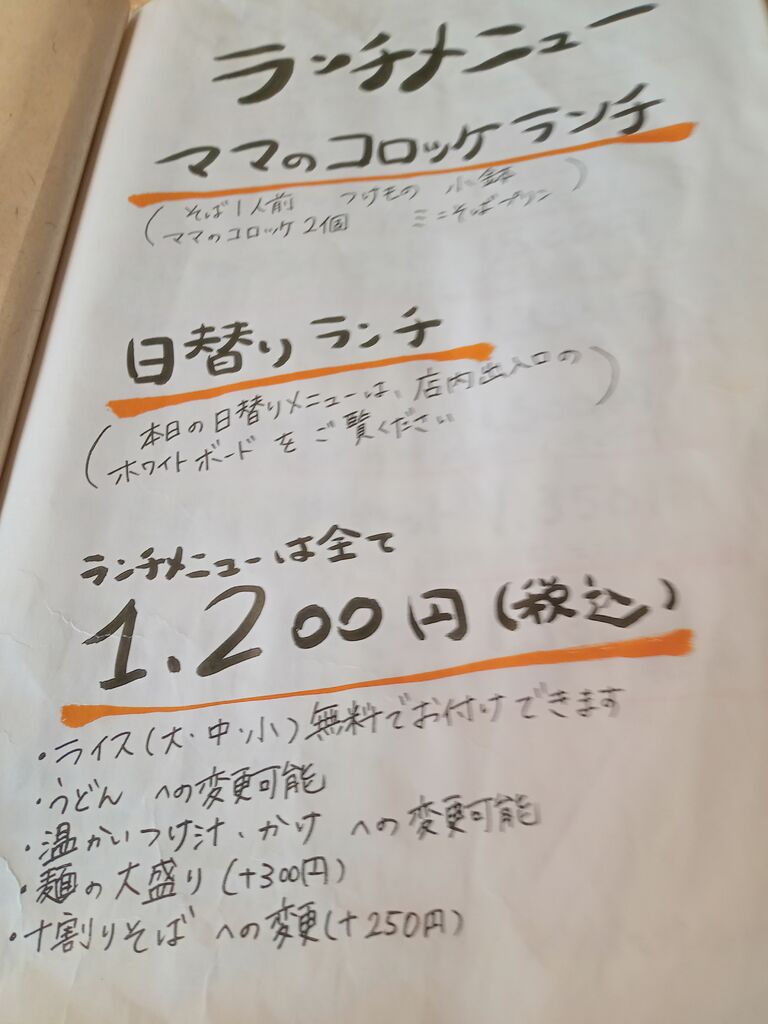 ランチメニュー
ママのコロッケランチ
(そば1人前 つけもの 小鉢
ママのコロッケ2個 ミニそばプリン)
日替りランチ
(本日の日替りメニューは、店内出入口の
ホワイトボードをご覧ください)
ランチメニューは全て
1.200円(税込)
・ライス(大・中・小)無料でお付けできます
・うどんへの変更可能
・温かいつけ汁・かけへの変更可能
・麺の大盛り(+300円)
・十割りそばへの変更(+250円)